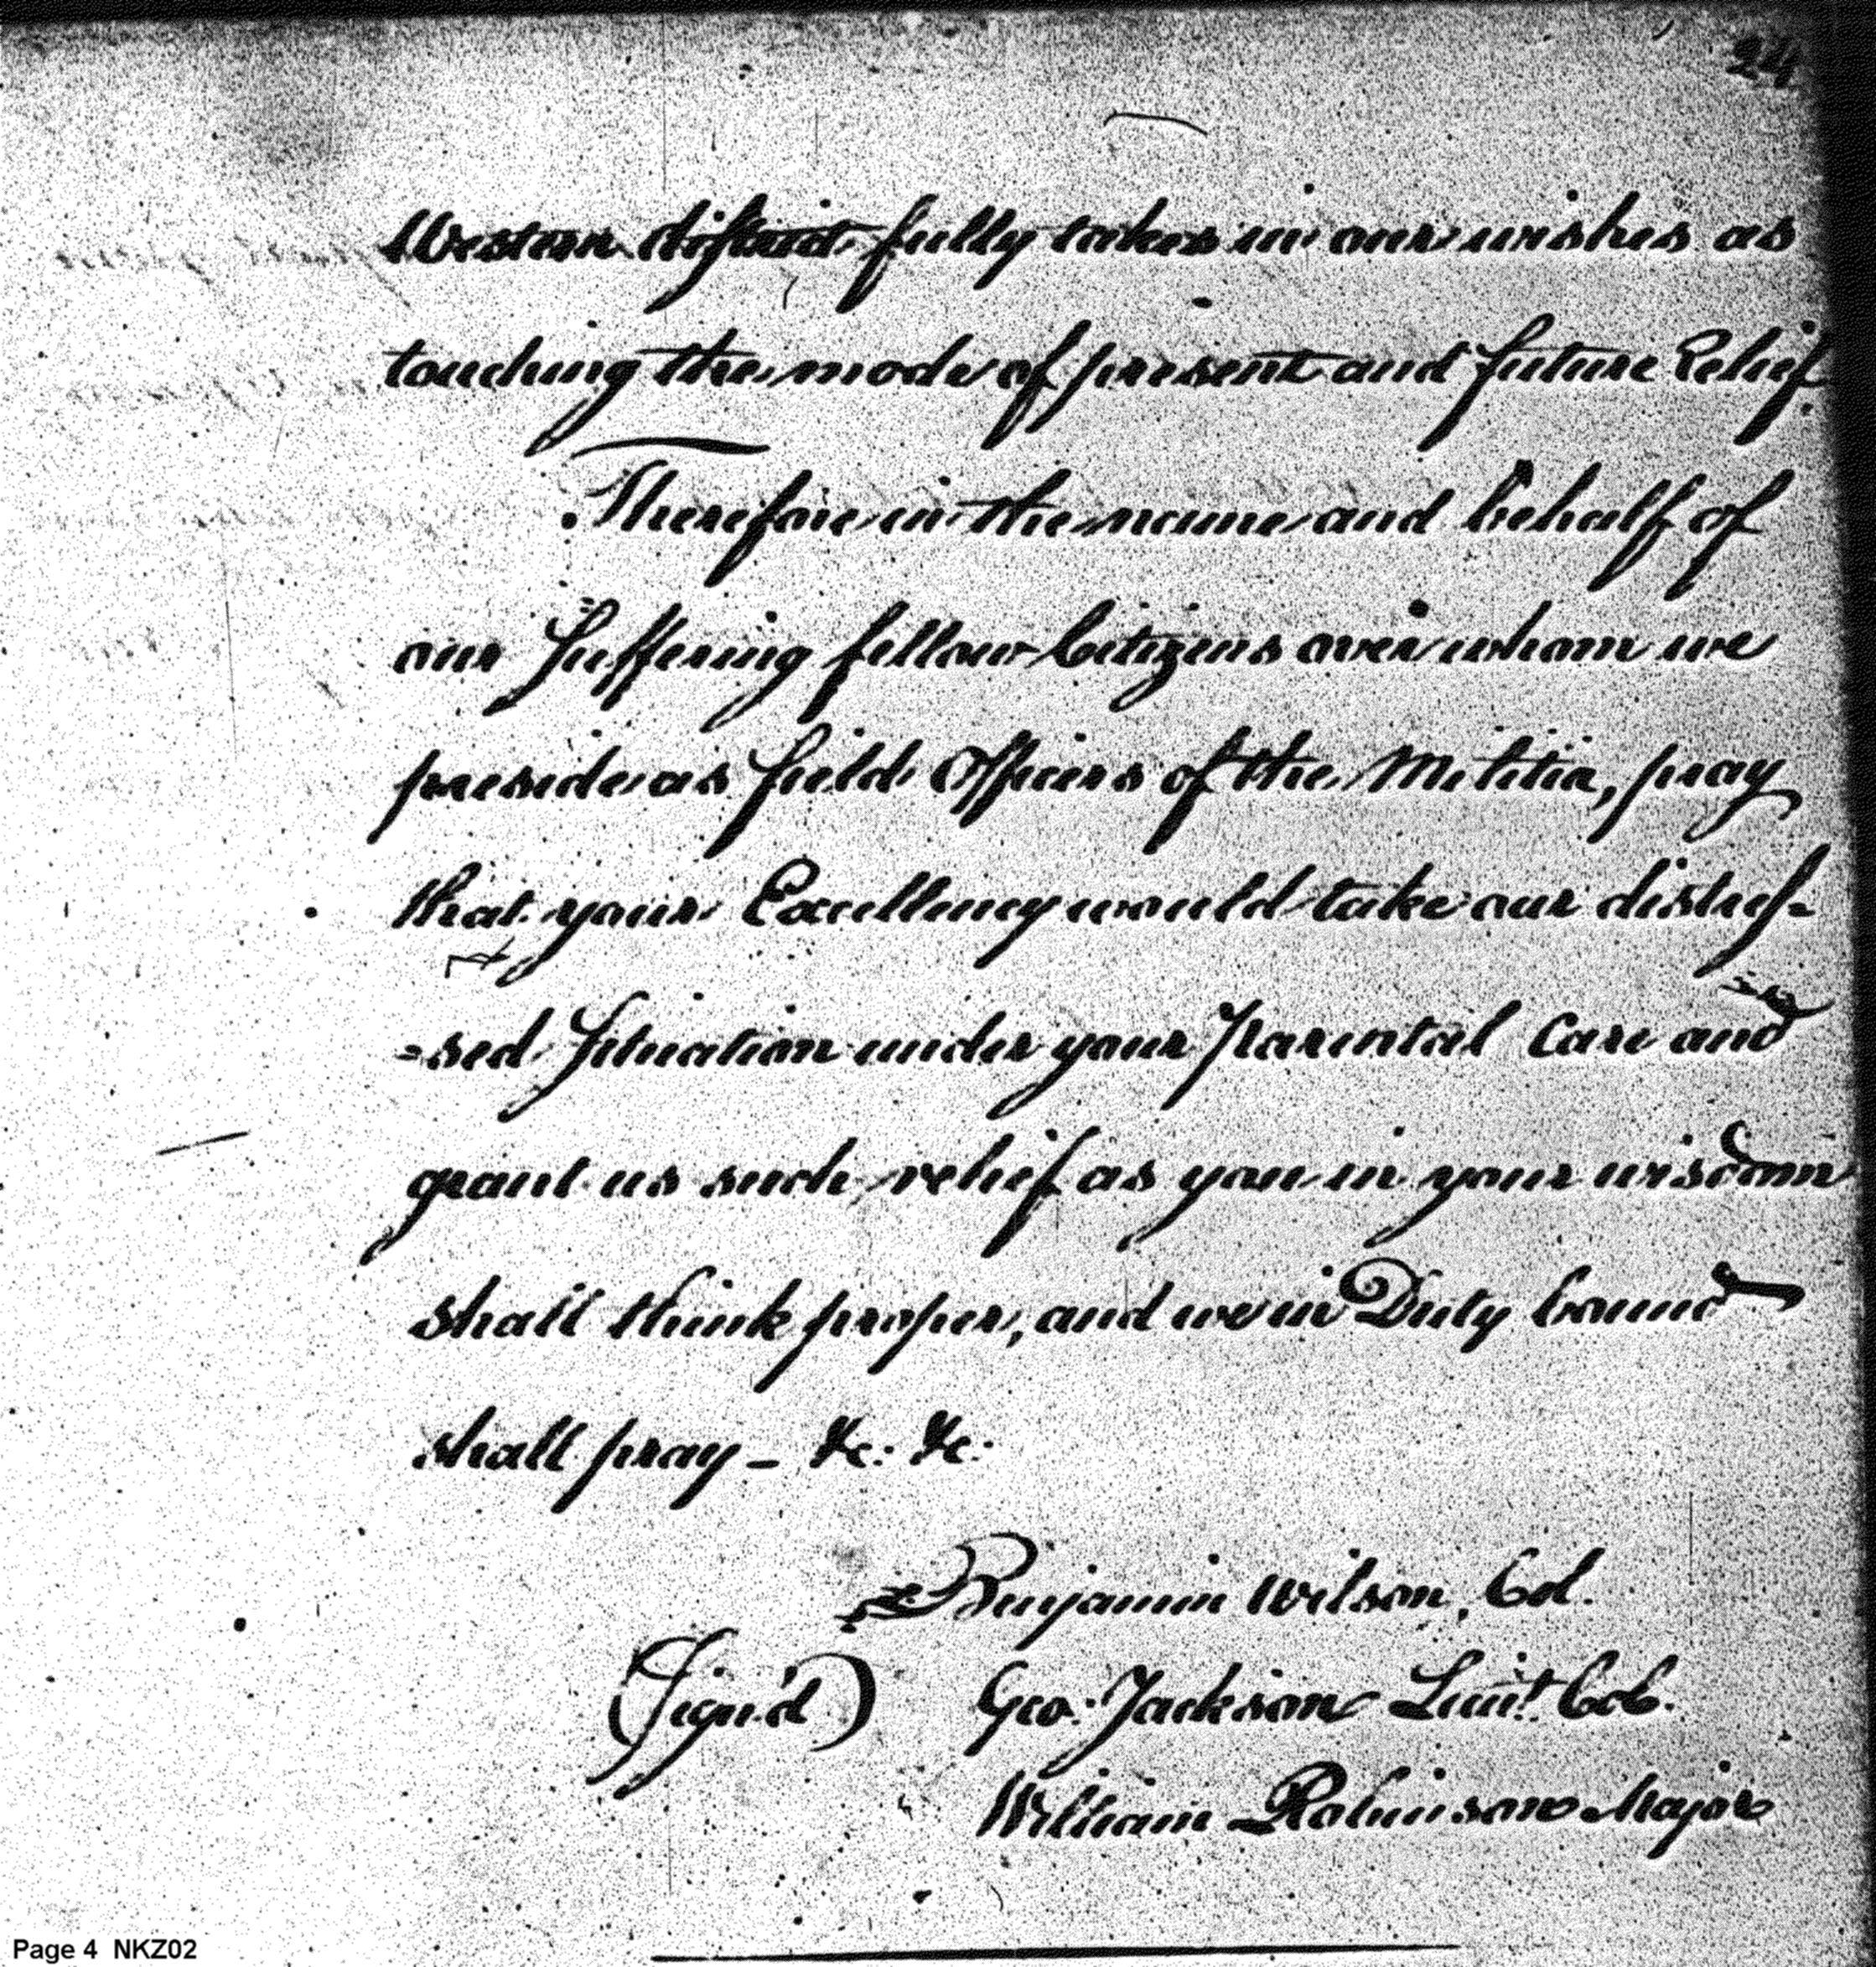 24
Western district fully takes in our wishes as
touching the mode of present and future Relief.
Therefore in the name and behalf of
our Suffering fellow Citizens over whom we
preside as field Officers of the Militia, pray
that your Excellency would take our distres-
-sed Situation under your Parental Care and
grant us such relief as you in your wisdom
shall think proper, and we in Duty bound
shall pray - &c. &c.
Benjamin Wilson, Col.
(Sign'd) Geo. Jackson Lieut. Col.
William Robinson Major
Page 4 NKZ02